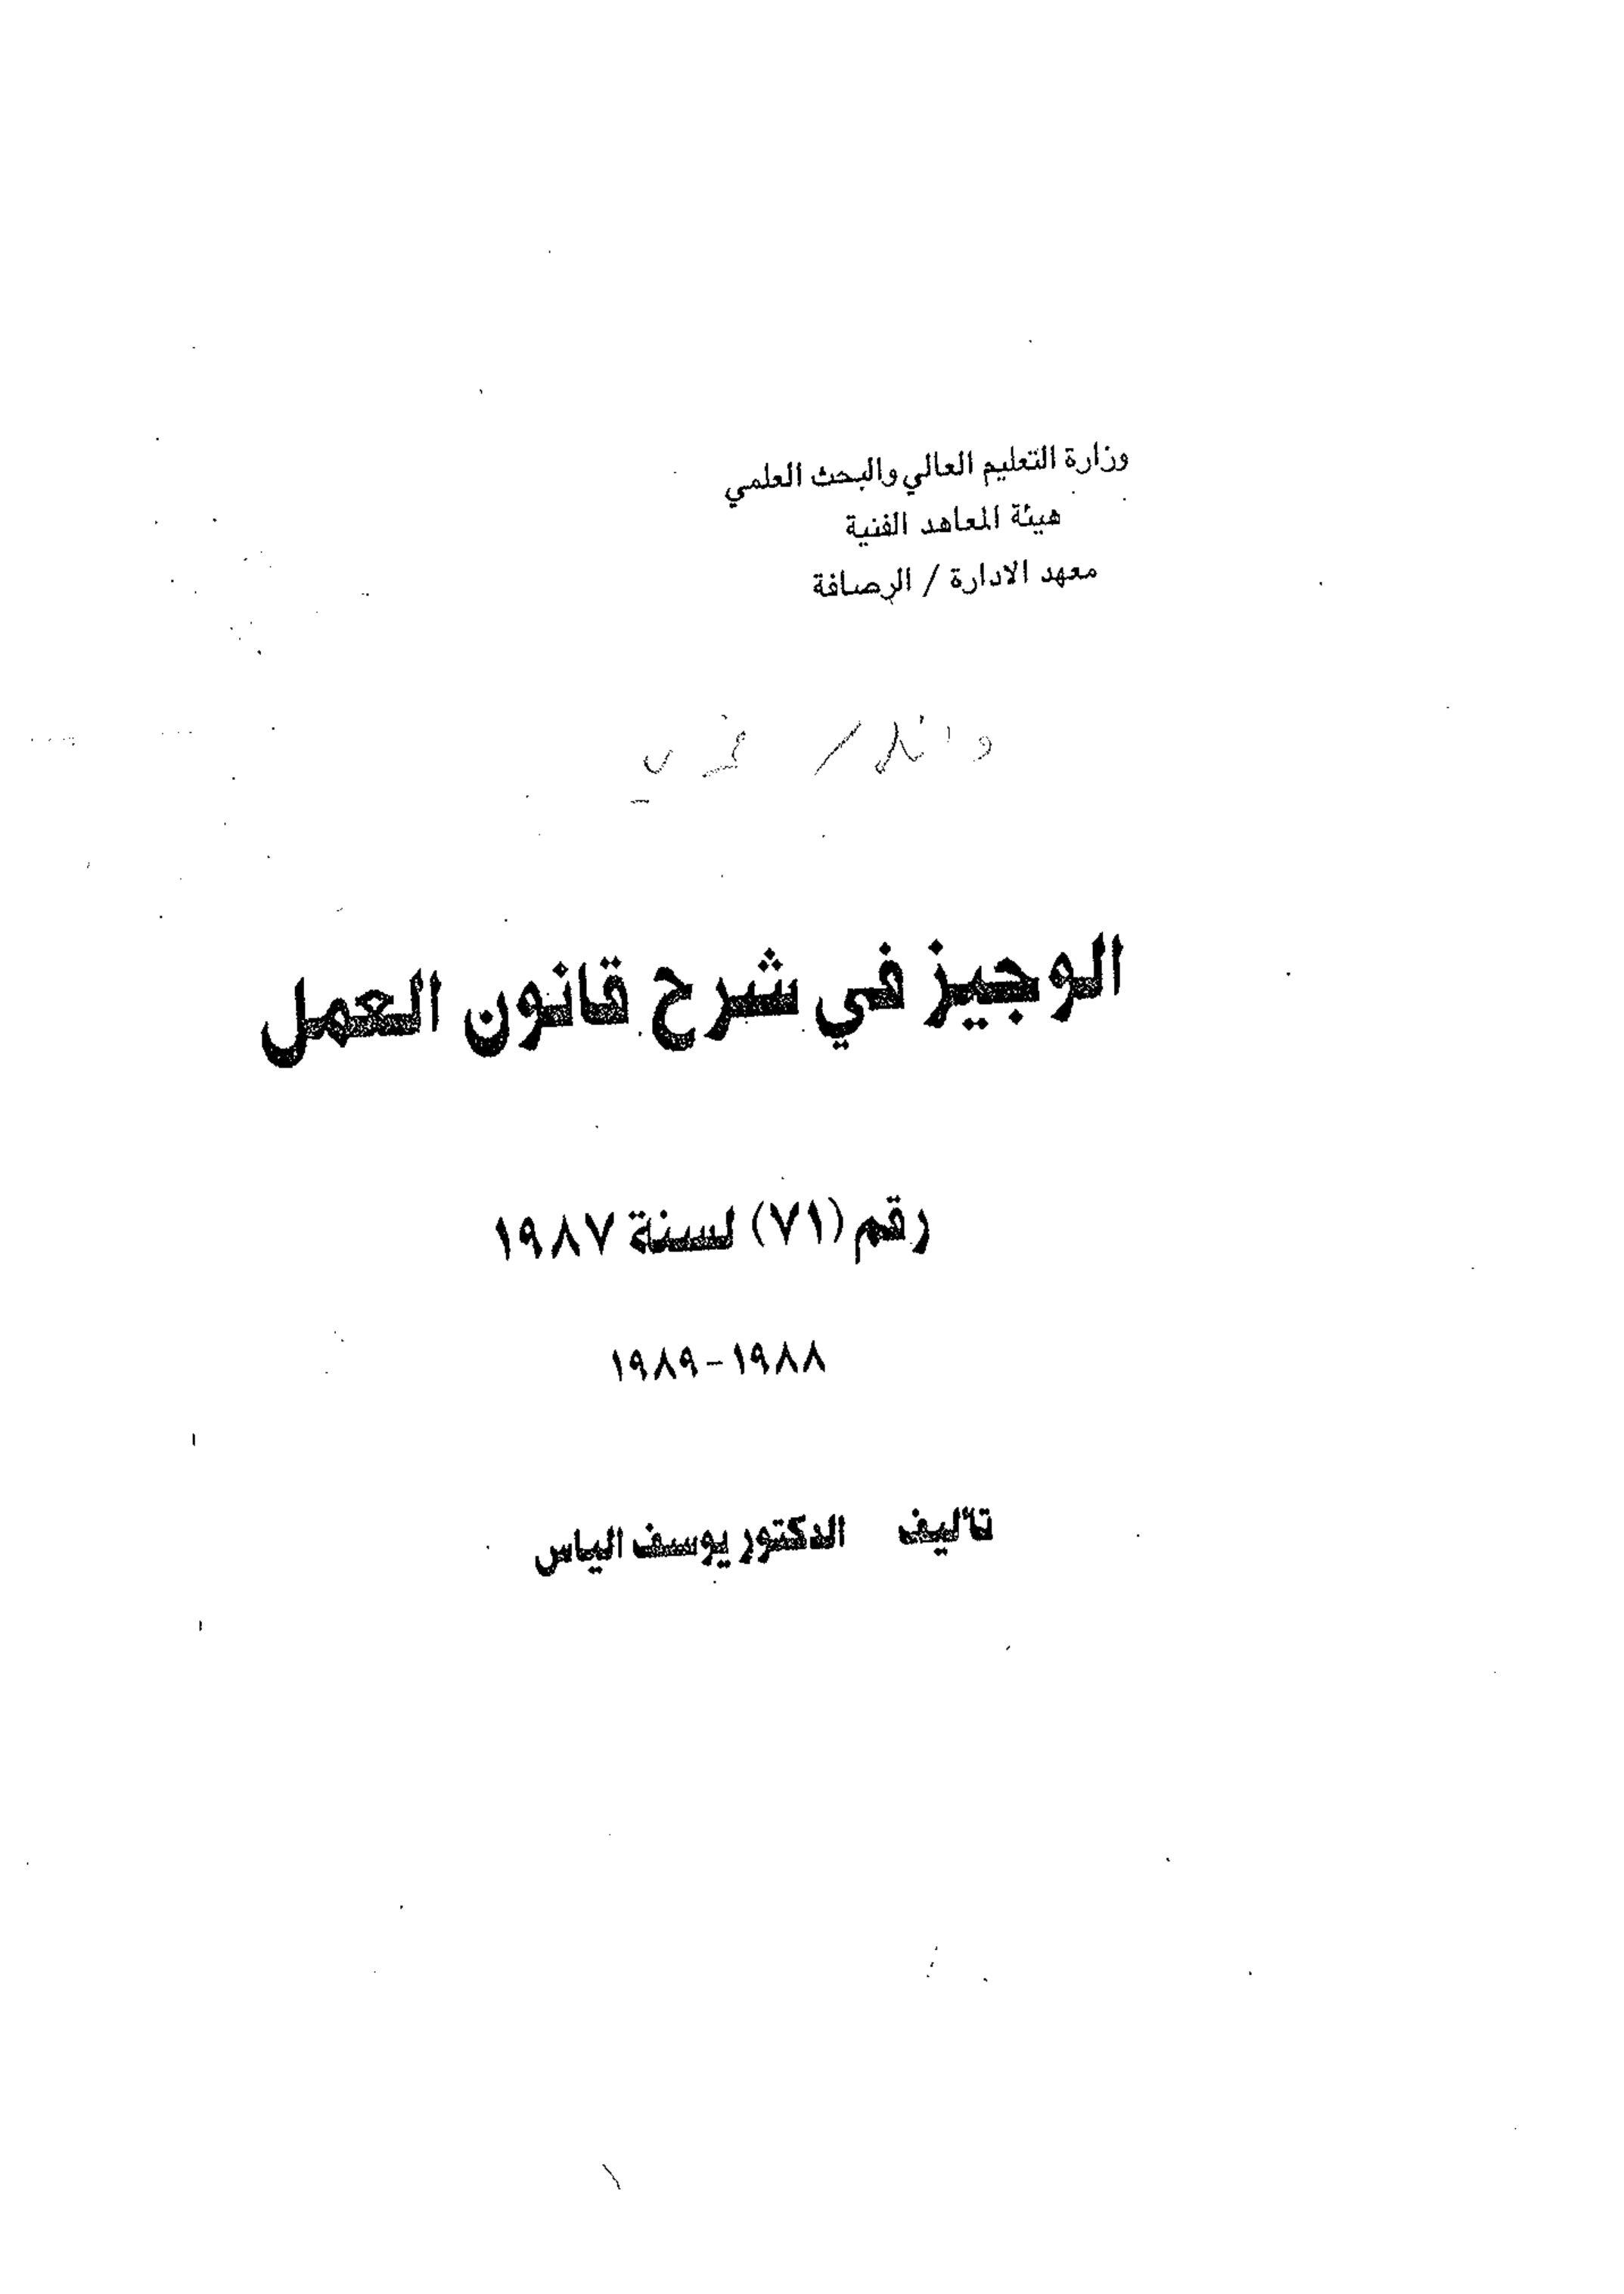 وزارة التعليم العالي والبحث العلمي
هيئة المعاهد الفنية
معهد الادارة / الرصافة
الوجيز في شرح قانون العمل
رقم (٧١) لسنة ١٩٨٧
١٩٨٨-١٩٨٩
تأليف الدكتور يوسف الياس